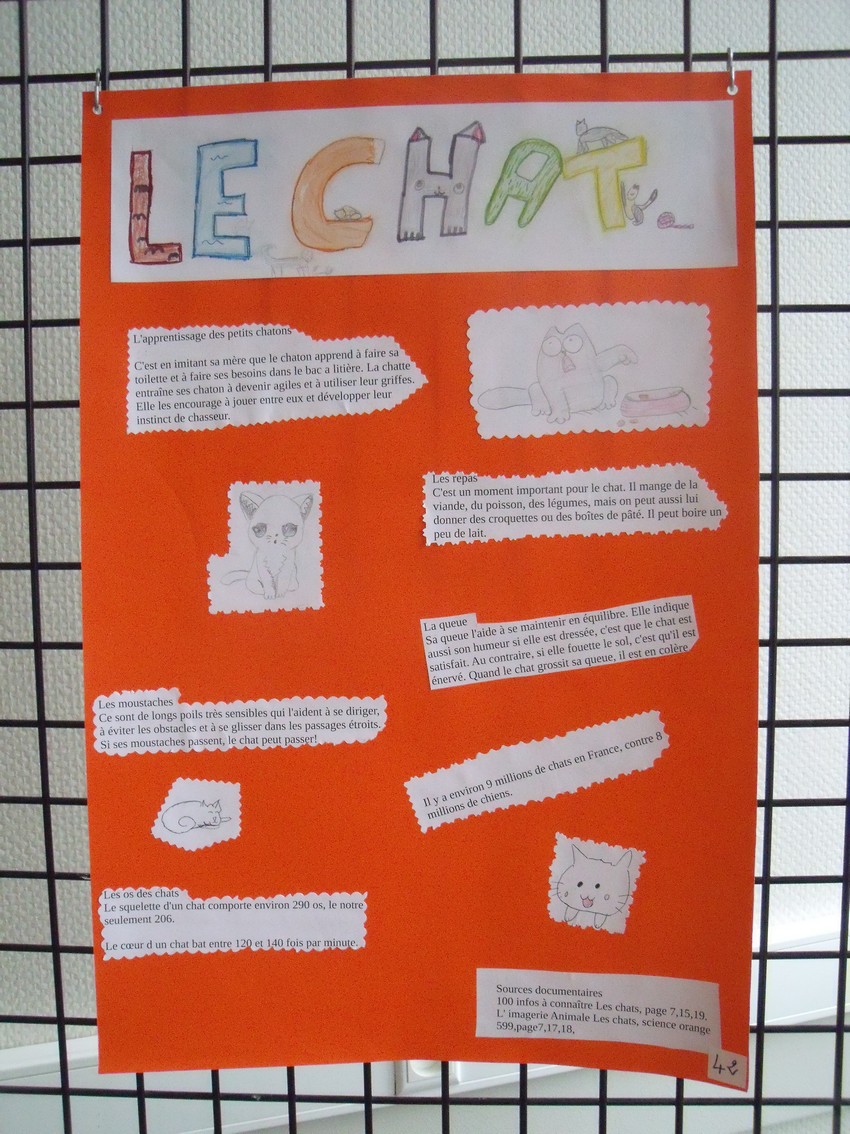 LE CHAT
L'apprentissage des petits chatons
C'est en imitant sa mère que le chaton apprend à faire sa
toilette et à faire ses besoins dans le bac a litière. La chatte
entraîne ses chaton à devenir agiles et à utiliser leur griffes.
Elle les encourage à jouer entre eux et développer leur
instinct de chasseur.
Les repas
C'est un moment important pour le chat. Il mange de la
viande, du poisson, des légumes, mais on peut aussi lui
donner des croquettes ou des boîtes de pâté. Il peut boire un
peu de lait.
La queue
Sa queue l'aide à se maintenir en équilibre. Elle indique
aussi son humeur si elle est dressée, c'est que le chat est
satisfait. Au contraire, si elle fouette le sol, c'est qu'il est
énervé. Quand le chat grossit sa queue, il est en colère
Les moustaches
Ce sont de longs poils très sensibles qui l'aident à se diriger,
à éviter les obstacles et à se glisser dans les passages étroits.
Si ses moustaches passent, le chat peut passer!
Il y a environ 9 millions de chats en France, contre 8
millions de chiens.
Les os des chats
Le squelette d'un chat comporte environ 290 os, le notre
seulement 206.
Le cœur d un chat bat entre 120 et 140 fois par minute.
Sources documentaires
100 infos à connaître Les chats, page 7,15,19.
L' imagerie Animale Les chats, science orange
599,page7,17,18,
42